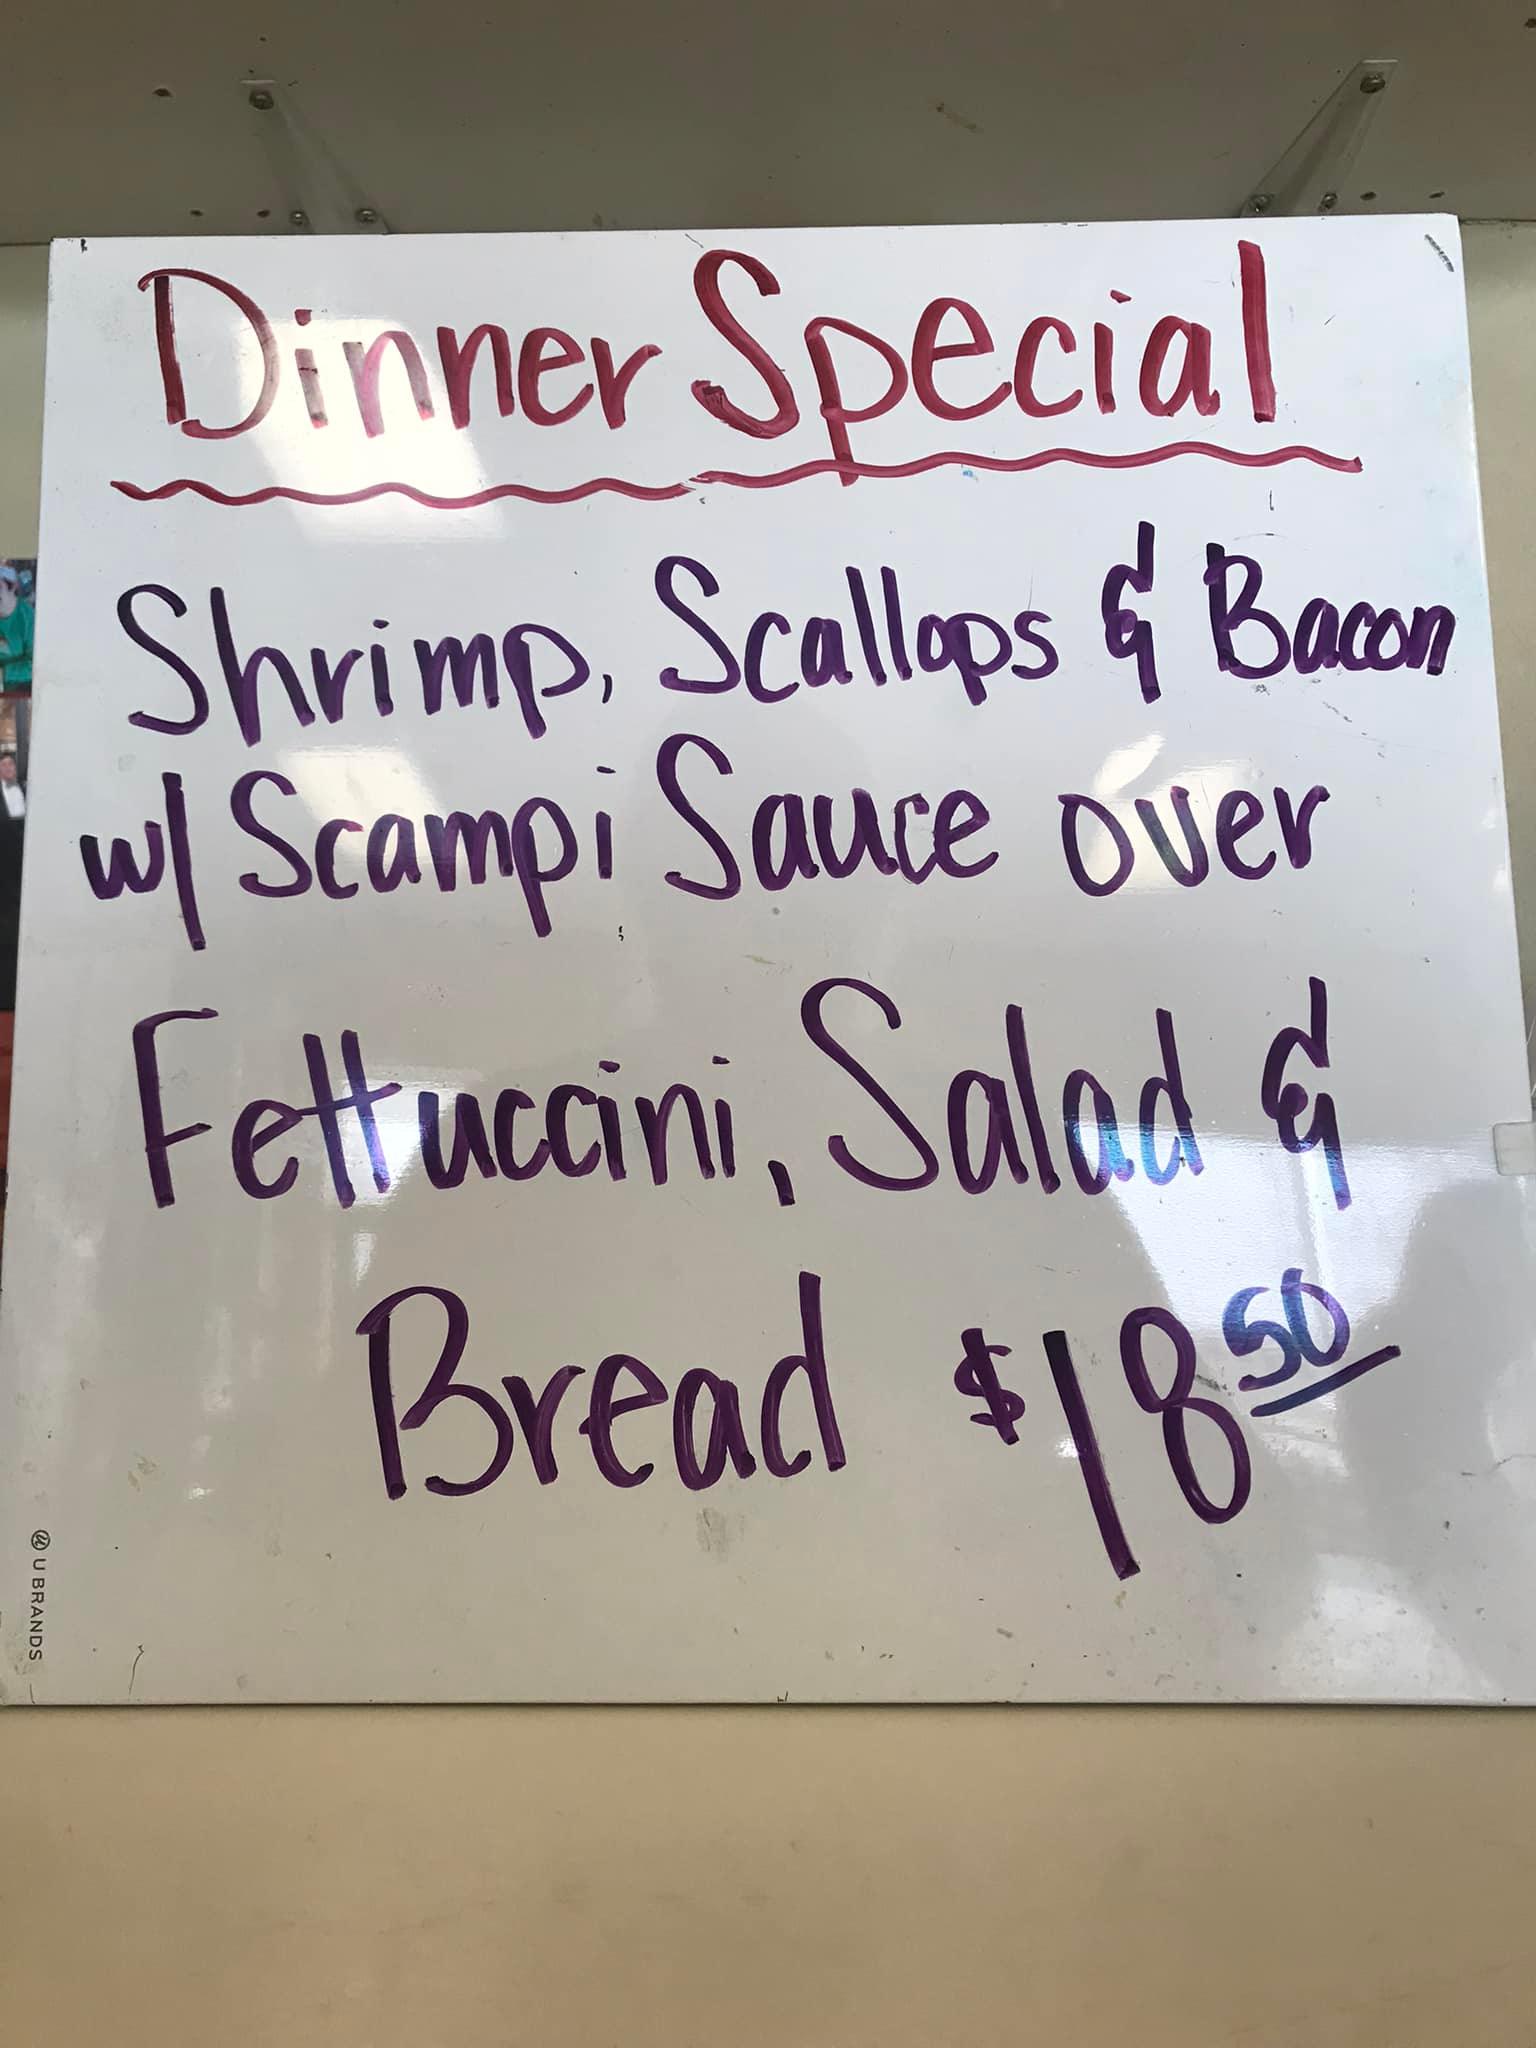 Dinner Special
Shrimp, Scallops & Bacon
w/ Scampi Sauce over
Fettuccini, Salad &
Bread $18 50
U BRANDS